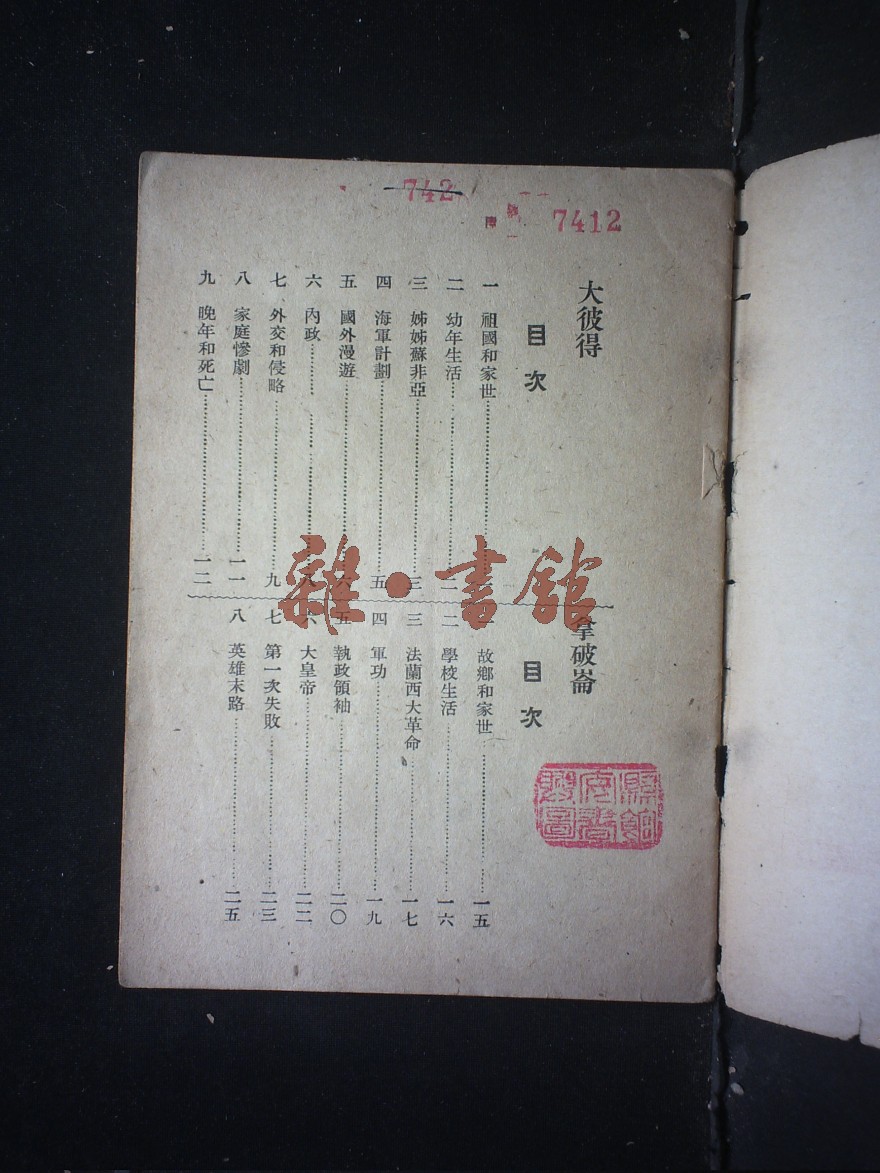 742
7412
大彼得
目次
一 祖國和家世
二 幼年生活
三 姊姊蘇非亞……三
四 海軍計劃……五
五 國外漫遊……六
六 內政……八
七 外交和侵略……九
八 家庭慘劇……一一
九 晚年和死亡……一二
拿破崙
目次
一 故鄉和家世……一五
二 學校生活……一六
三 法蘭西大革命……一七
四 軍功……一九
五 執政領袖……二〇
六 大皇帝……二二
七 第一次失敗……二三
八 英雄末路……二五
雜·書館